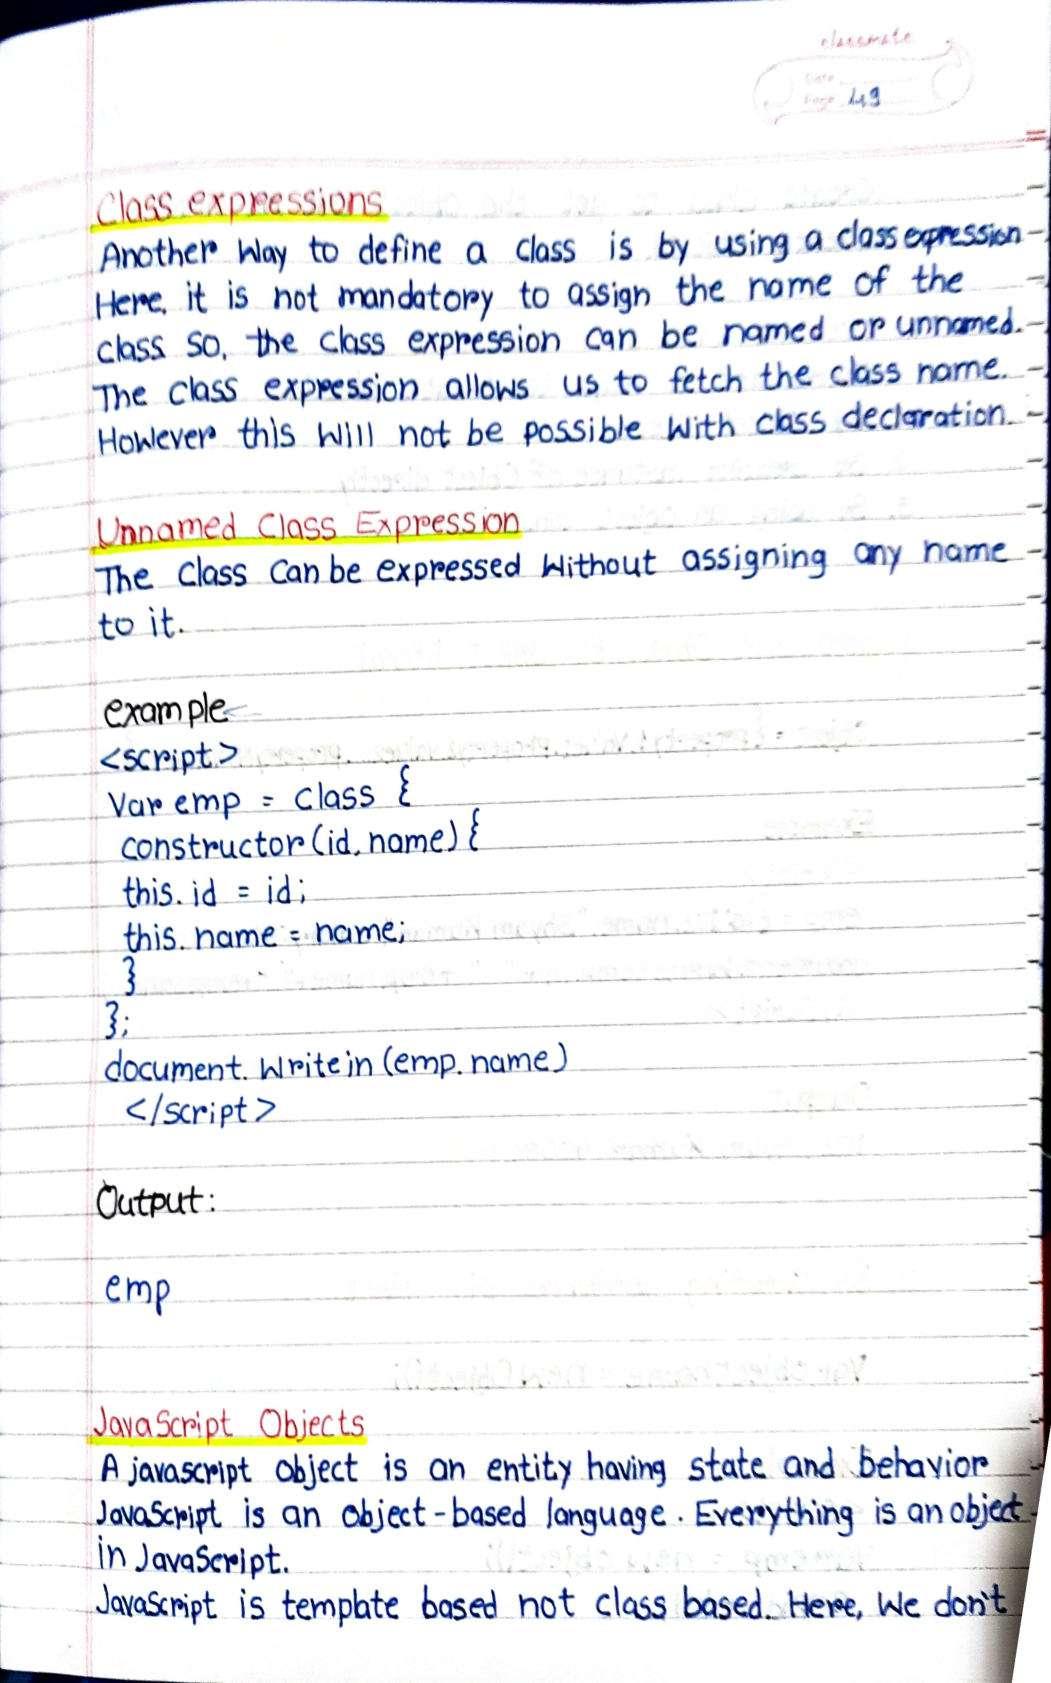 classmate
Date
Page 49
Class expressions
Another way to define a class is by using a class expression
Here, it is not mandatory to assign the name of the
class so, the class expression can be named or unnamed.
The class expression allows us to fetch the class name.
However this will not be possible with class declaration.
Unnamed Class Expression
The class can be expressed without assigning any name
to it.
example
<script>
Var emp = class {
constructor(id, name) {
this. id = id;
this. name = name;
}
};
document. writein (emp. name)
</script>
Output:
emp
JavaScript Objects
A javascript object is an entity having state and behavior
JavaScript is an object-based language. Everything is an object
in JavaScript.
JavaScript is template based not class based. Here, we don't